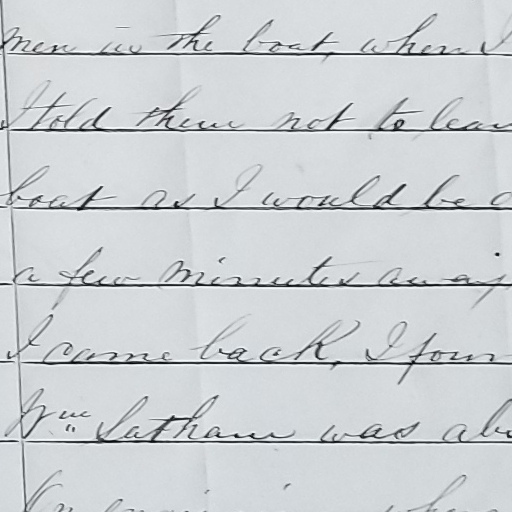 men in the boat, when I
I told them not to leav
boat as I would be o
a few minutes away
I came back, I foun
Wm Latham was abo
On enquiring whe